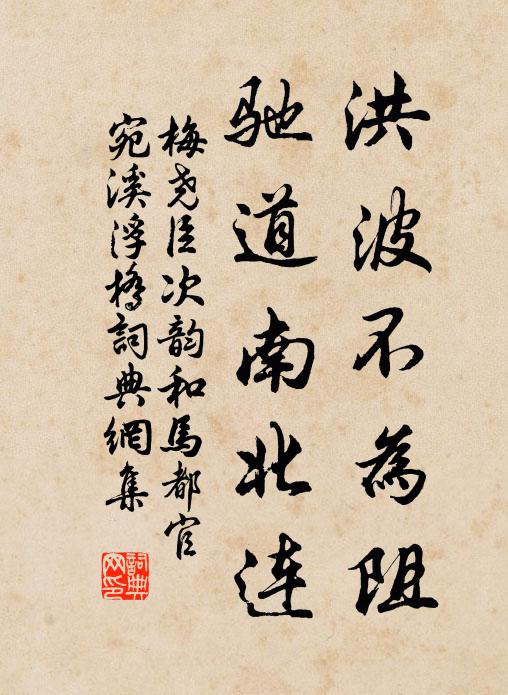 洪波不為阻
馳道南北連
梅堯臣次韵和馬都官
宛溪浮橋詞典網集
詞典
网印